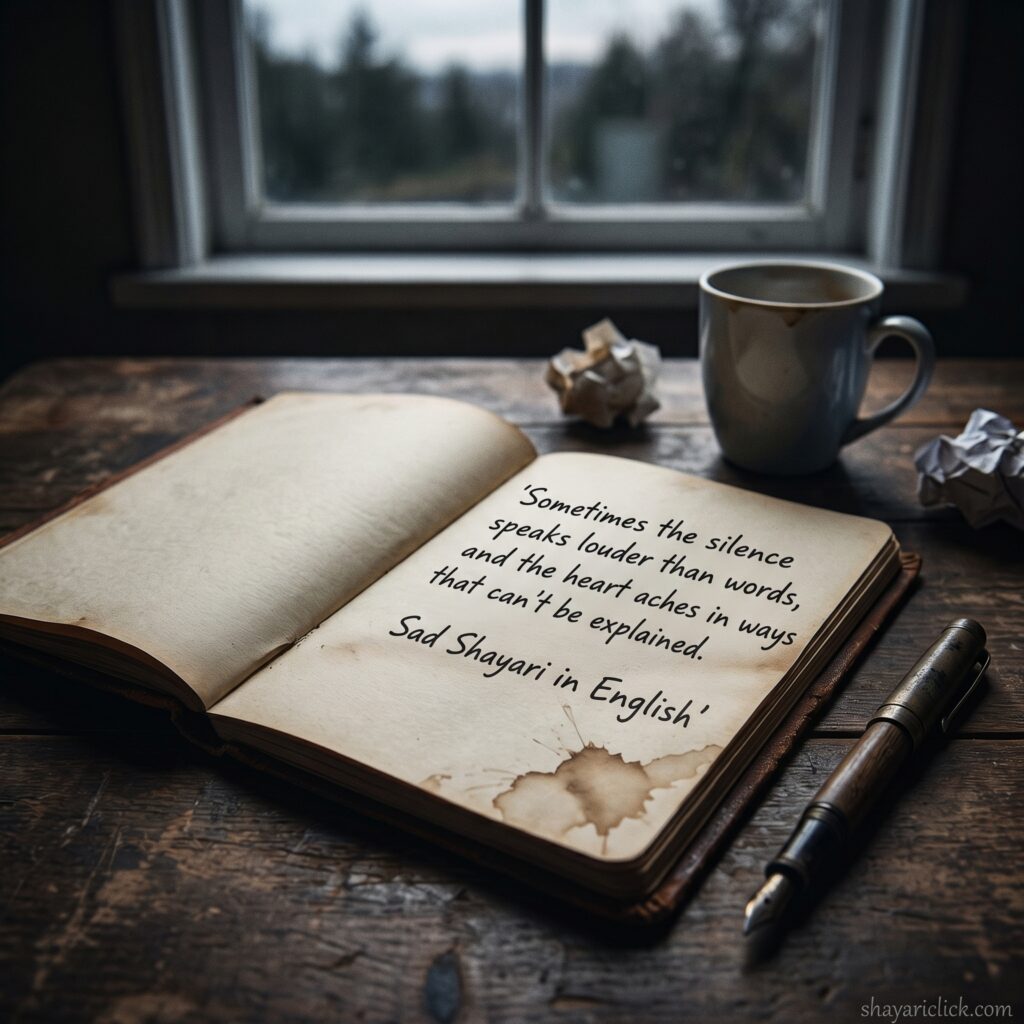 'Sometimes the silence
speaks louder than words,
and the heart aches in ways
that can't be explained.
Sad Shayari in English'
shayariclick.com